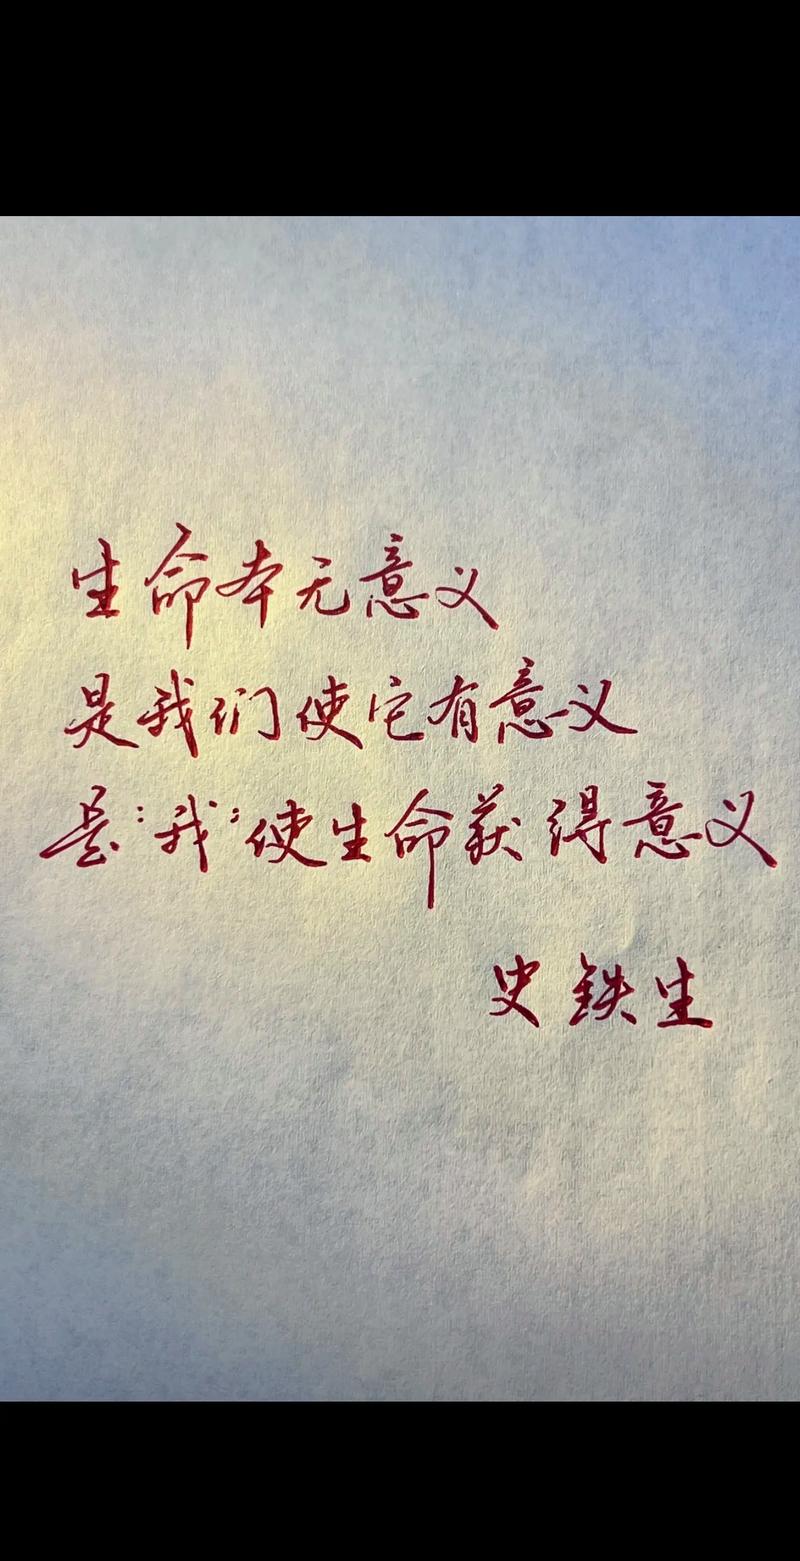 生命本无意义
是我们使它有意义
是“我”使生命获得意义
史铁生